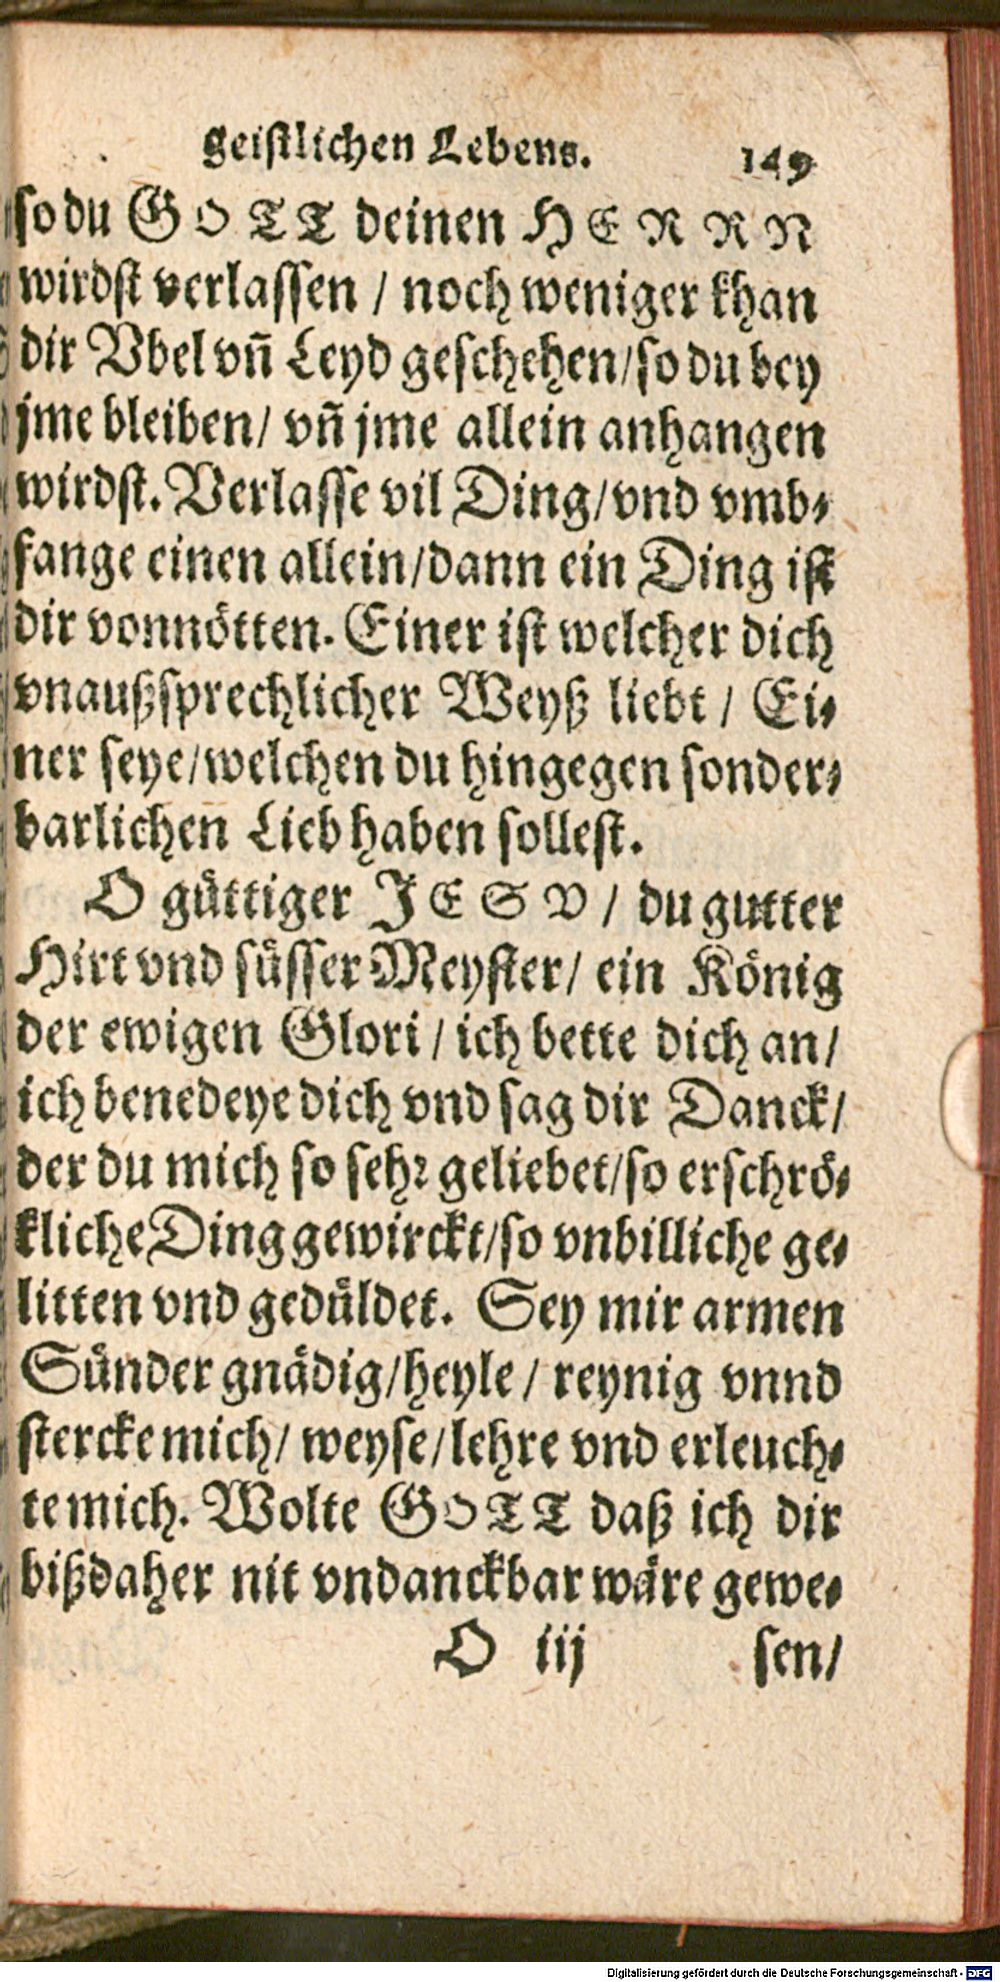 geistlichen Lebens. 149
so du GOTT deinen HERRN
wirdst verlassen / noch weniger khan
dir Vbel vñ Leyd geschehen/so du bey
jme bleiben/ vñ jme allein anhangen
wirdst. Verlasse vil Ding/vnd vmb-
fange einen allein/dann ein Ding ist
dir vonnötten. Einer ist welcher dich
vnaußsprechlicher Weyß liebt / Ei-
ner seye/welchen du hingegen sonder-
barlichen Lieb haben sollest.
O güttiger JESV / du gutter
Hirt vnd süsser Meyster/ ein König
der ewigen Glori / ich bette dich an/
ich benedeye dich vnd sag dir Danck/
der du mich so sehr geliebet/so erschrö-
kliche Ding gewirckt/so vnbilliche ge-
litten vnd gedüldet. Sey mir armen
Sünder gnädig/heyle / reynig vnnd
stercke mich/ weyse/lehre vnd erleuch-
te mich. Wolte GOTT daß ich dir
bißdaher nit vndanckbar wäre gewe-
O iij sen/
Digitalisierung gefördert durch die Deutsche Forschungsgemeinschaft - DFG